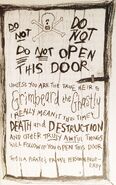 DO NOT
DO NOT
DO NOT OPEN
THIS DOOR
UNLESS YOU ARE THE TRUE HEIR TO
Grimbeard the Ghastly
I REALLY MEAN IT THIS TIME
DEATH and DESTRUCTION
AND OTHER TRULY AWFUL THINGS
WILL FOLLOW IF YOU OPEN THIS